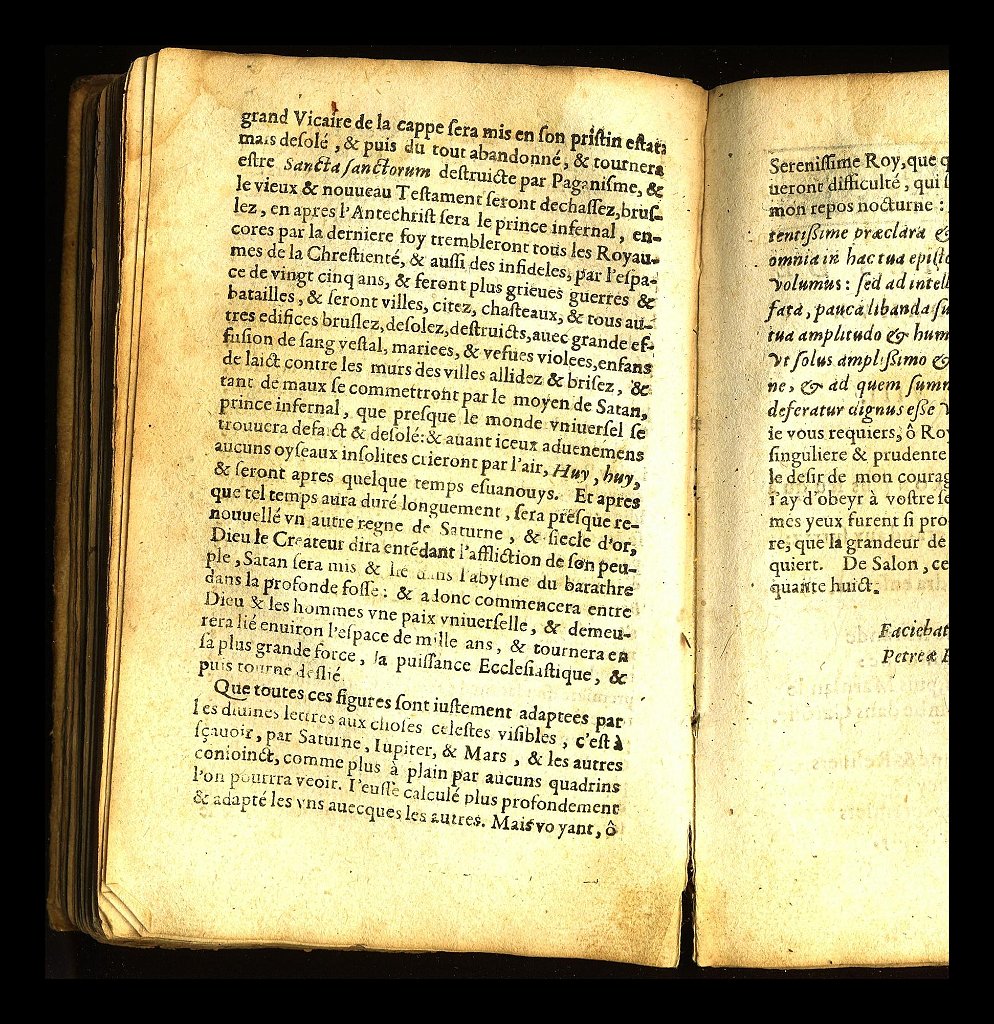 grand Vicaire de la cappe ſera mis en ſon priſtin eſtat:
mais deſolé, & puis du tout abandonné, & tournera
eſtre Sancta ſanctorum deſtruicte par Paganiſme, &
le vieux & nouueau Teſtament ſeront dechaſſez, bruſ-
lez, en apres l'Antechriſt ſera le prince infernal, en-
cores par la derniere foy trembleront tous les Royau-
mes de la Chreſtienté, & auſſi des infideles, par l'eſpa-
ce de vingt cinq ans, & feront plus grieues guerres &
batailles, & ſeront villes, citez, chaſteaux, & tous au-
tres edifices bruſlez, deſolez, deſtruicts, auec grande ef-
fuſion de ſang veſtal, mariees, & vefues violees, enfans
de laict contre les murs des villes allidez & briſez, &
tant de maux ſe commettront par le moyen de Satan,
prince infernal, que preſque le monde vniuerſel ſe
trouuera defaict & deſolé: & auant iceux aduenemens
aucuns oyſeaux inſolites crieront par l'air, Huy, huy,
& ſeront apres quelque temps eſuanouys. Et apres
que tel temps aura duré longuement, ſera preſque re-
nouuellé vn autre regne de Saturne, & ſiecle d'or,
Dieu le Createur dira entēdant l'affliction de ſon peu-
ple, Satan ſera mis & lié dans l'abyſme du barathre
dans la profonde foſſe: & adonc commencera entre
Dieu & les hommes vne paix vniuerſelle, & demeu-
rera lié enuiron l'eſpace de mille ans, & tournera en
ſa plus grande force, la puiſſance Eccleſiaſtique, &
puis tourne deſlié.
Que toutes ces figures ſont iuſtement adaptees par
les diuines lettres aux choſes celeſtes viſibles, c'eſt à
ſçauoir, par Saturne, Iupiter, & Mars, & les autres
conioinct, comme plus à plain par aucuns quadrins
l'on pourrra veoir. I'euſſe calculé plus profondement
& adapté les vns auecques les autres. Mais vo yant, ô
Sereniſſime Roy, que
ueront difficulté, qui
mon repos nocturne:
tentiſſime præclara &
omnia in hac tua
volumus: ſed ad
fata, pauca libanda
tua amplitudo &
Vt ſolus ampliſſimo &
ne, & ad quem
deferatur dignus eſſe
ie vous requiers, ô
ſinguliere & prudente
le deſir de mon
i'ay d'obeyr à voſtre
mes yeux furent ſi
re, que la grandeur de
quiert. De Salon, ce
quante huict.
Faciebat
Petreæ